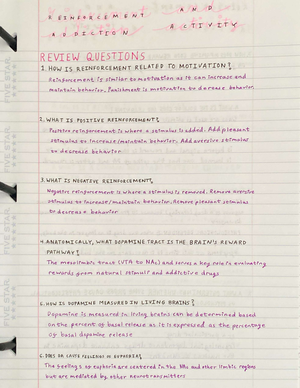 REINFORCEMENT AND
ADDICTION ACTIVITY
REVIEW QUESTIONS
1. HOW IS REINFORCEMENT RELATED TO MOTIVATION?
Reinforcement is similar to motivation as it can increase and
maintain behavior. Punishment is motivation to decrease behavior.
2. WHAT IS POSITIVE REINFORCEMENT?
Positive reinforcement is where a stimulus is added. Add pleasant
stimulus to increase/maintain behavior. Add aversive stimulus
to decrease behavior
3. WHAT IS NEGATIVE REINFORCEMENT?
Negative reinforcement is where a stimulus is removed. Remove aversive
stimulus to increase/maintain behavior. Remove pleasant stimulus
to decrease behavior
4. ANATOMICALLY, WHAT DOPAMINE TRACT IS THE BRAIN'S REWARD
PATHWAY?
The mesolimbic tract (VTA to NAc) and serves a key role in evaluating
rewards from natural stimuli and addictive drugs
HOW IS DOPAMINE MEASURED IN LIVING BRAINS?
Dopamine is measured in living brains can be determined based
on the percent of basal release as it is expressed as the percentage
of basal dopamine release
FEELINGS OF EUPHORIA?
The feelings of euphoria are centered in the NAc and other limbic regions
but are mediated by other neurotransmitters
FIVE STAR
FIVE STAR
FIVE STAR